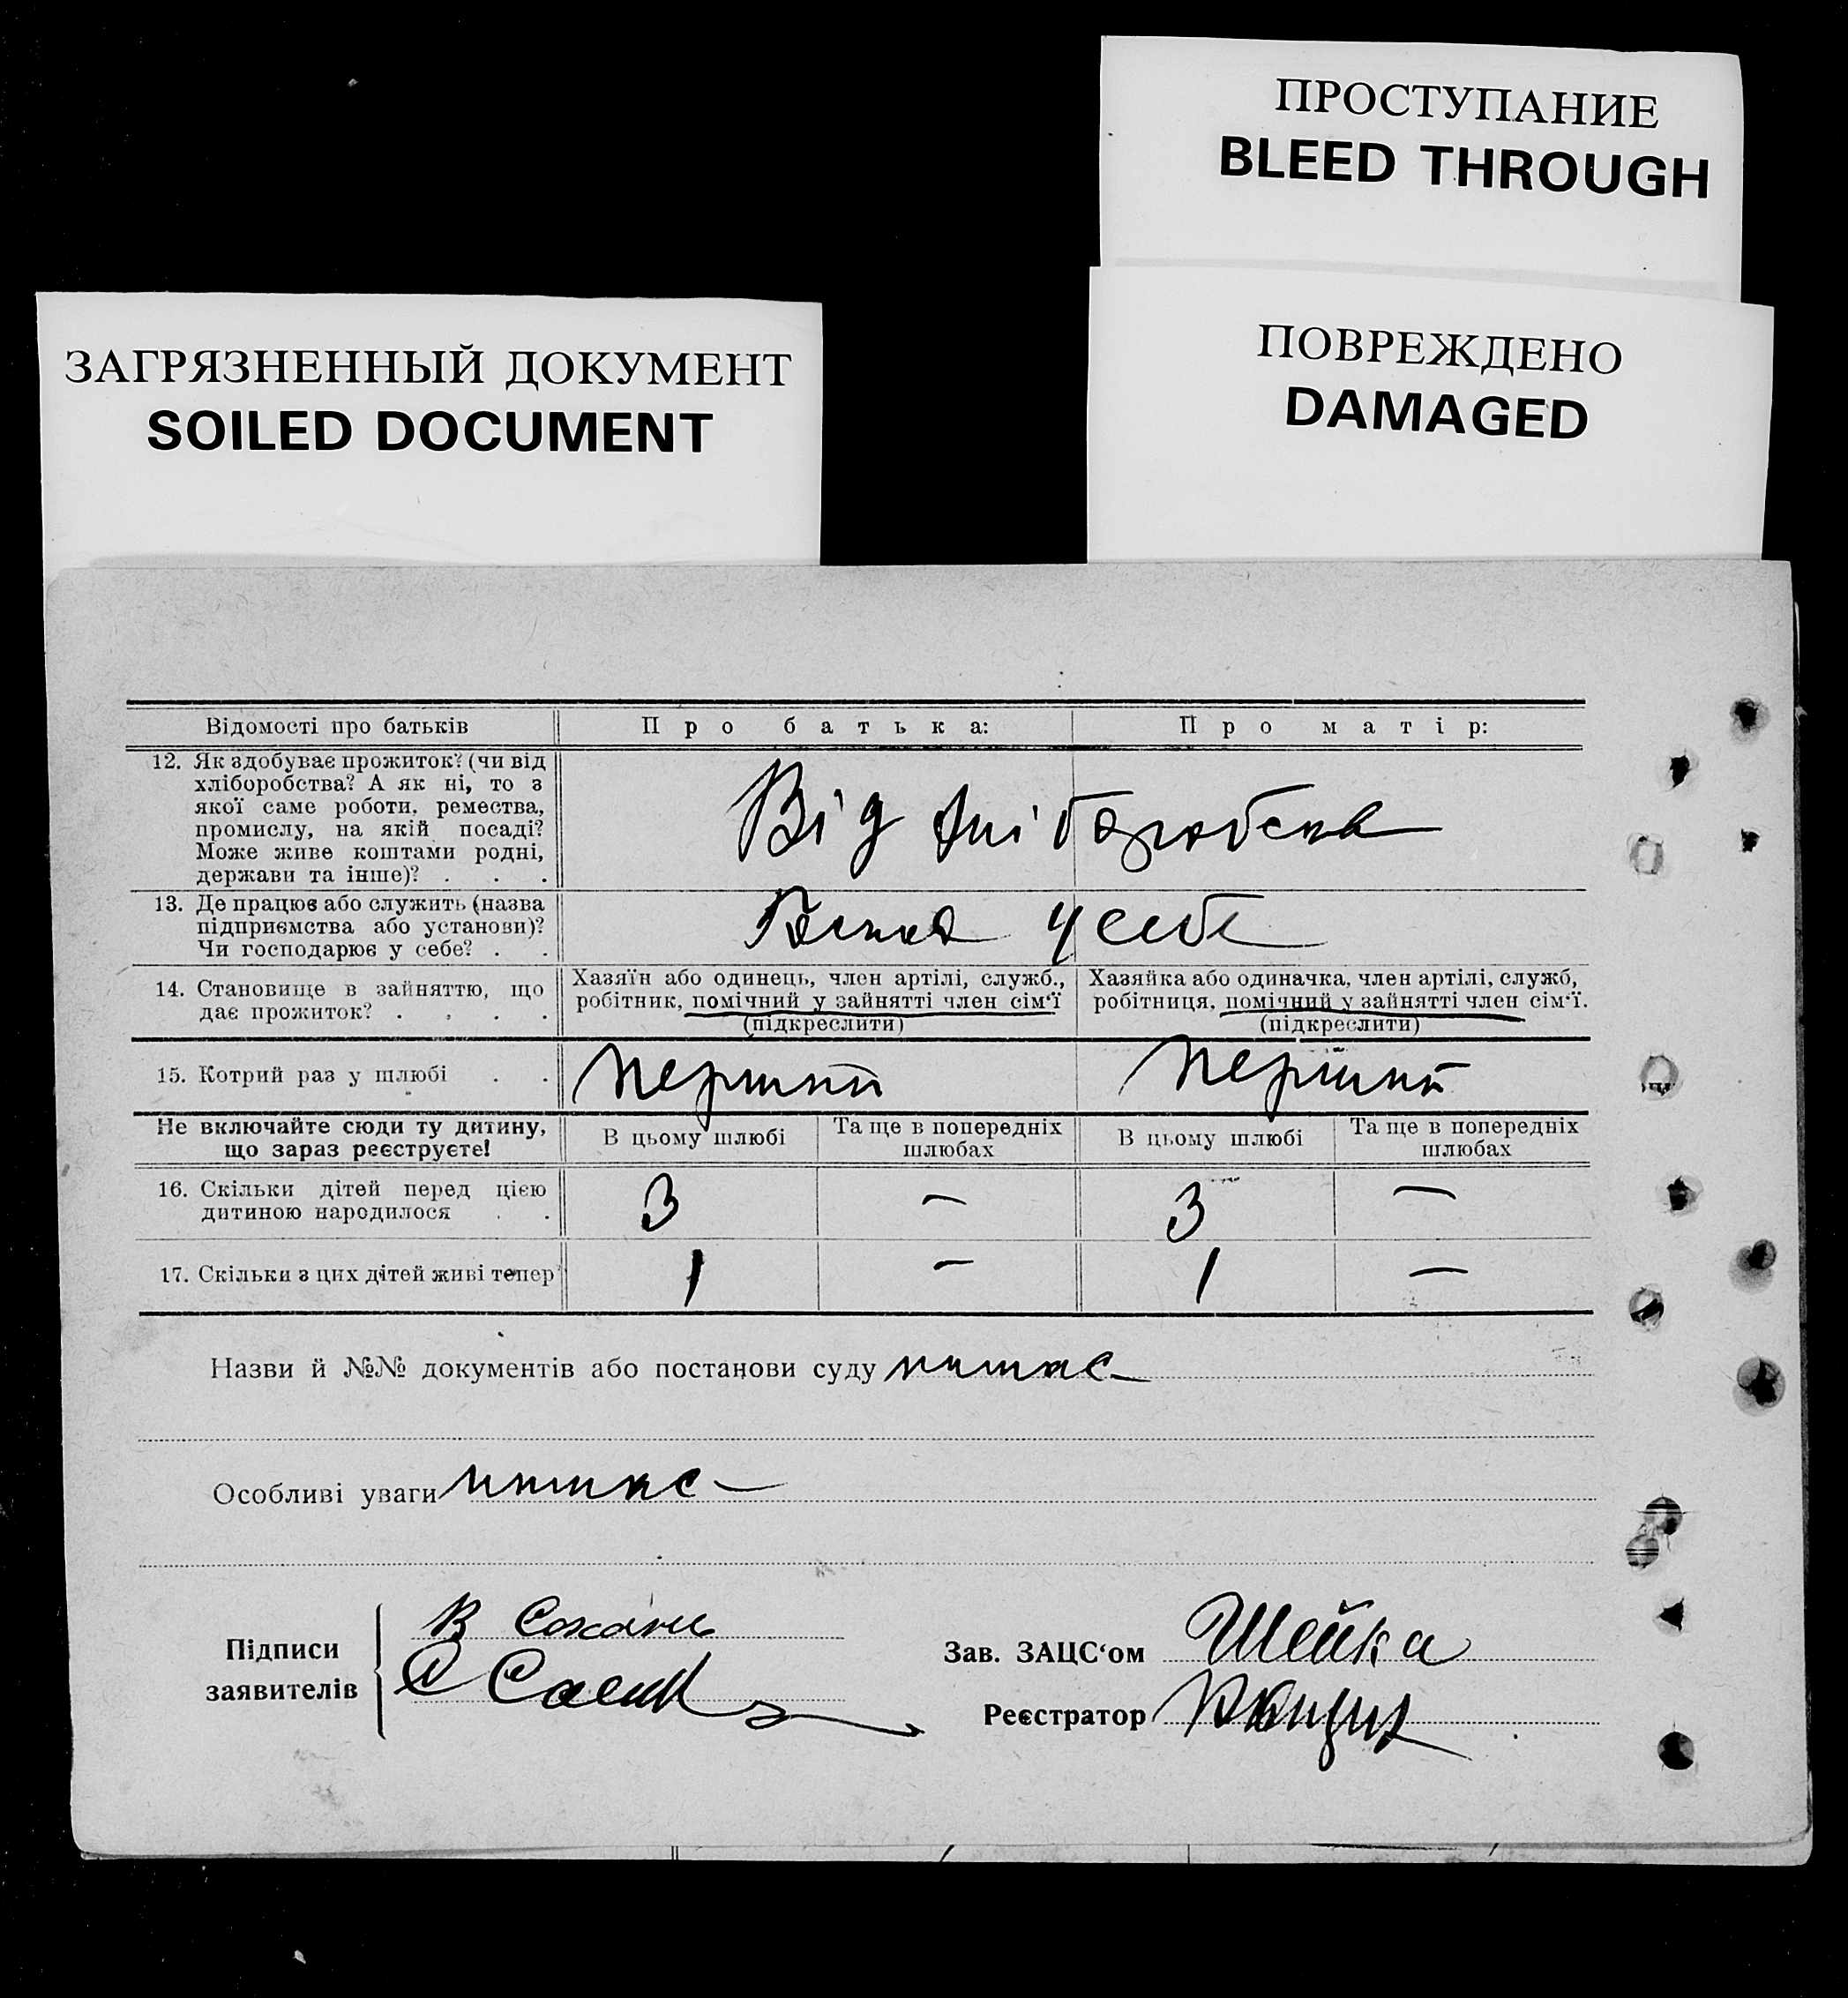 ПРОСТУПАНИЕ
BLEED THROUGH
ПОВРЕЖДЕНО
DAMAGED
ЗАГРЯЗНЕННЫЙ ДОКУМЕНТ
SOILED DOCUMENT
Відомості про батьків
Про батька:
Про матір:
12. Як здобуває прожиток? (чи від
хліборобства? А як ні, то з
якої саме роботи, ремества,
промислу, на якій посаді?
Може живе коштами родні,
держави та інше)? . . .
Від
13. Де працює або служить (назва
підприємства або установи)?
Чи господарює у себе? . .
у себе
14. Становище в зайняттю, що
дає прожиток? . . . .
Хазяїн або одинець, член артілі, служб.,
робітник, помічний у зайнятті член сім'ї
(підкреслити)
Хазяйка або одиначка, член артілі, служб,
робітниця, помічний у зайнятті член сім'ї.
(підкреслити)
15. Котрий раз у шлюбі . .
перший
перший
Не включайте сюди ту дитину,
що зараз реєструєте!
В цьому шлюбі
Та ще в попередніх
шлюбах
В цьому шлюбі
Та ще в попередніх
шлюбах
16. Скільки дітей перед цією
дитиною народилося . .
3
—
3
—
17. Скільки з цих дітей живі тепер?
1
—
1
—
Назви й №№ документів або постанови суду
Особливі уваги
Підписи
заявителів
В
С
Зав. ЗАЦС'ом Шейка
Реєстратор